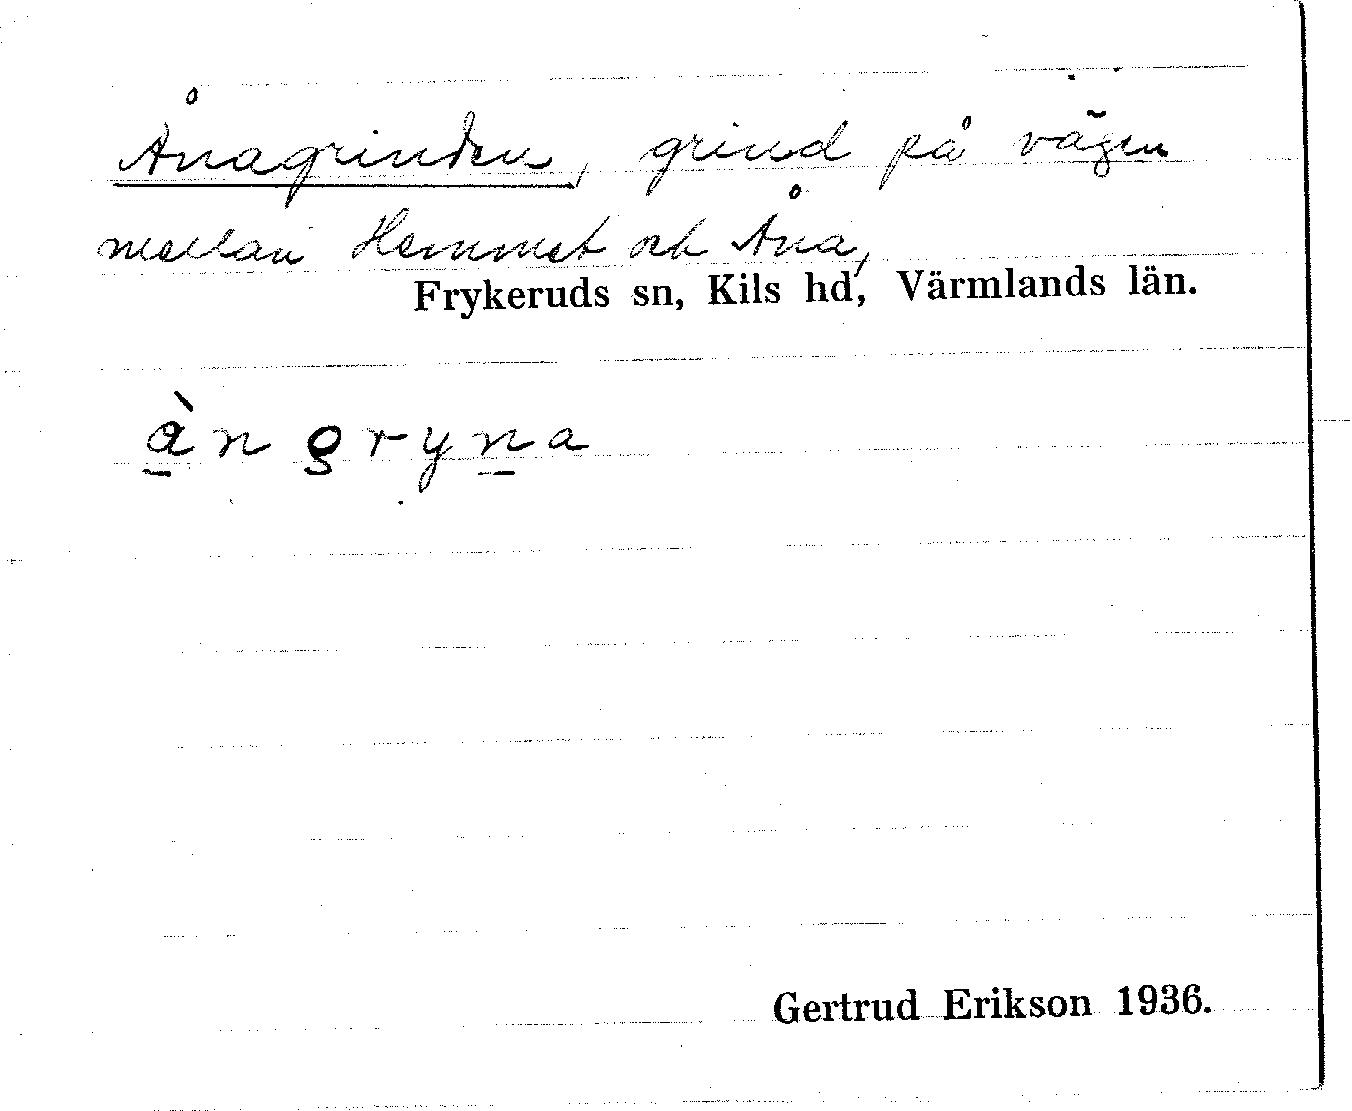 Ånagrinden, grind på vägen
mellan Hemmet och Åna,
Frykeruds sn, Kils hd, Värmlands län.
à̱n gryṉa
Gertrud Erikson 1936.